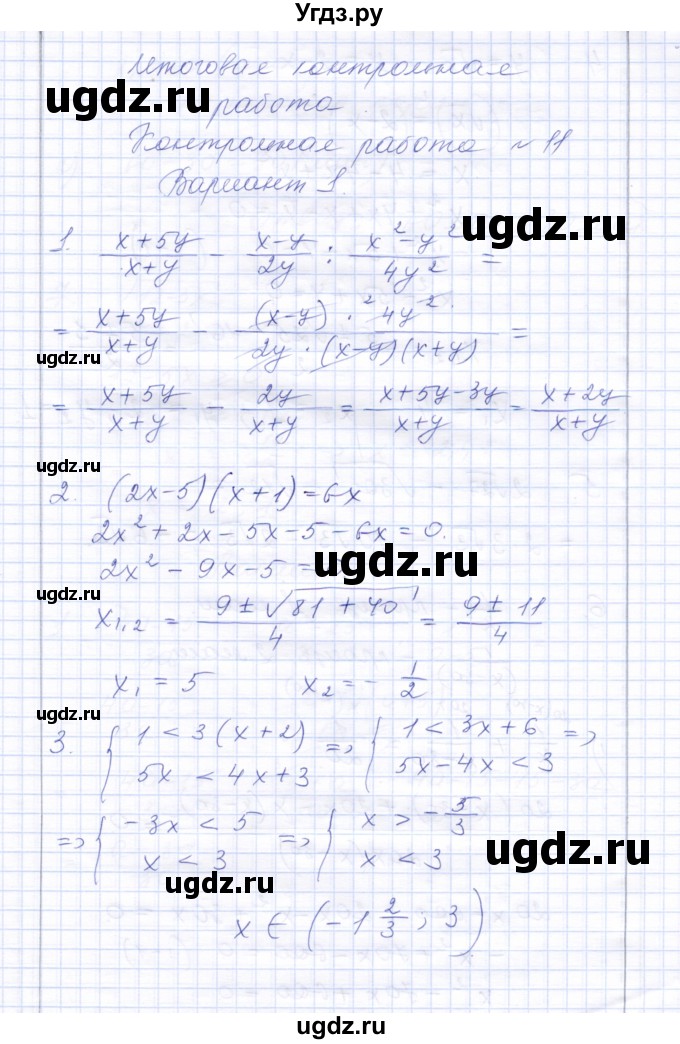 Угдз.ру
Итоговая контрольная
ugdz.ru
работа.
Контрольная работа №11
Вариант 1.
ugdz.ru
1. (x+5y)/(x+y) - (x-y)/(2y) : (x²-y²)/(4y²) =
= (x+5y)/(x+y) - ((x-y) · ²4y²)/(2y · (x-y)(x+y)) =
ugdz.ru
ugdz.ru
= (x+5y)/(x+y) - 2y/(x+y) = (x+5y-3y)/(x+y) = (x+2y)/(x+y)
ugdz.ru
2. (2x-5)(x+1)=6x
2x²+2x-5x-5-6x=0.
ugdz.ru
2x²-9x-5=
ugdz.ru
x₁,₂ = (9±√(81+40))/4 = (9±11)/4
x₁=5 x₂=-1/2
ugdz.ru
3. { 1<3(x+2) => { 1<3x+6 =>
5x<4x+3 5x-4x<3
ugdz.ru
=> { -3x<5 => { x>-5/3
x<3 x<3
ugdz.ru
ugdz.ru
x∈(-1 2/3; 3)
ugdz.ru
ugdz.ru